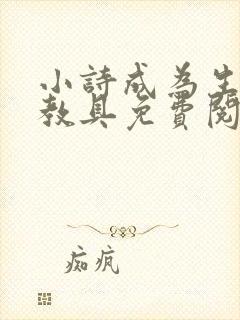 小詩成為生
教具免費閱
痴瘋